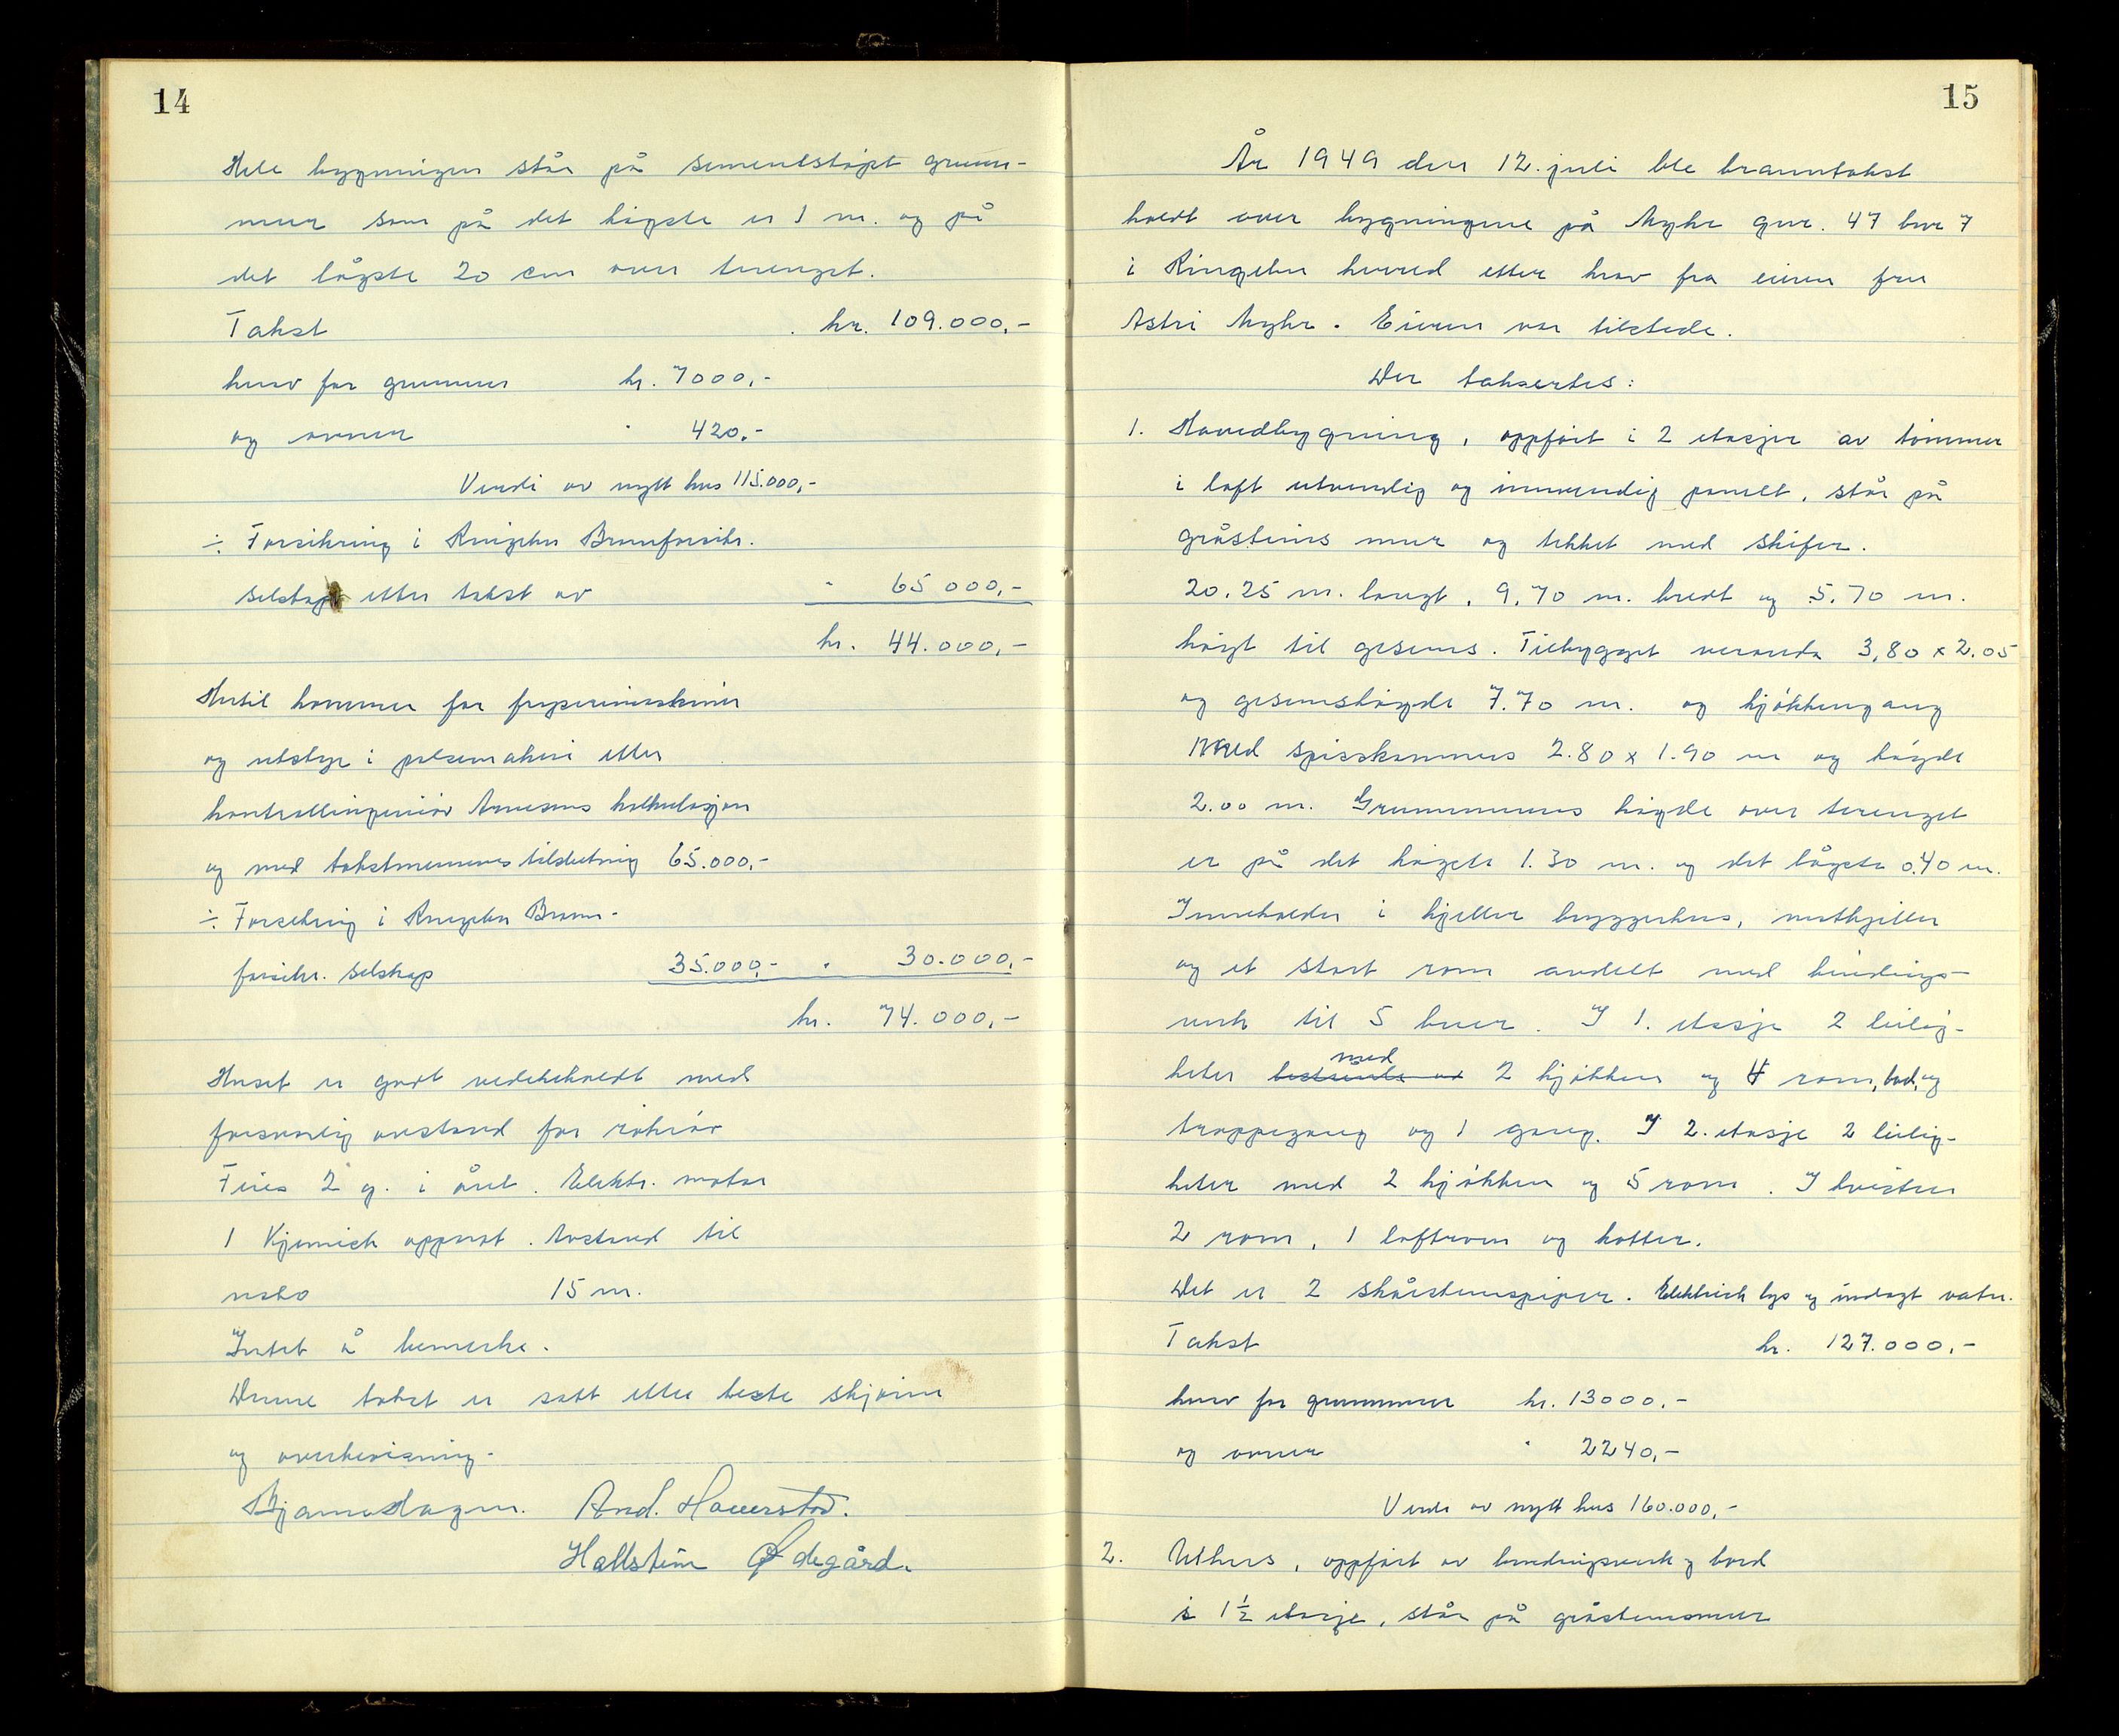 14
Hele bygningen står på sementstøpt grunn-
mur som på det høgste er 1 m. og på
det lågste 20 cm over terenget.
Takst kr. 109.000,-
herav for grunnmur kr. 7000,-
og ovner " 420,-
Verdi av nytt hus 115.000,-
÷ Forsikring i Ringebu Brannforsikr.
selskap etter takst av " 65 000,-
kr. 44.000,-
Hertil kommer for fryserimaskiner
og utstyr i pølsemakeri etter
kontrollingeniør Arnesens kalkulasjon
og med takstmennenes tilslutning 65.000,-
÷ Forsikring i Ringebu Brann-
forsikr. selskap 35.000,- " 30.000,-
kr. 74.000,-
Huset er godt vedlikeholdt med
forsvarlig avstand for røkrør
Feies 2 g. i året. Elektr. motor
1 Kjemisk apparat. Avstand til
nabo 15 m.
Intet å bemerke.
Denne takst er satt etter beste skjønn
og overbevisning.
And. Haverstad.
Hallstein Ødegård.
15
År 1949 den 12. juli ble branntakst
holdt over bygningene på Myhr gnr. 47 bnr 7
i Ringebu herred etter krav fra eieren fru
Astri Myhr. Eieren var tilstede.
Der taksertes:
1. Hovedbygning, oppført i 2 etasjer av tømmer
i loft utvendig og innvendig panelt, står på
gråsteins mur og tekket med skifer.
20.25 m. langt, 9.70 m. bredt og 5.70 m.
høgt til gesems. Tilbygget veranda 3,80 x 2.05
og gesemshøgde 7.70 m. og kjøkkengang
med spisskammers 2.80 x 1.90 m og høgde
2.00 m. Grunnmurens høgde over terenget
er på det høgste 1.30 m. og det lågste 0.40 m.
Inneholder i kjeller bryggerhus, matkjeller
og et stort rom avdelt med bindings-
verk til 5 buer. I 1. etasje 2 leilig-
heter bestående av med 2 kjøkken og 4 rom, bad, og
trappegang og 1 gang. I 2. etasje 2 leilig-
heter med 2 kjøkken og 5 rom. I kvisten
2 rom, 1 loftrom og kotter.
Det er 2 skorsteinspiper. Elektrisk lys og innlagt vatn.
Takst kr. 127.000,-
herav for grunnmur kr. 13000,-
og ovner " 2240,-
Verdi av nytt hus 160.000,-
2. Uthus, oppført av bindingsverk og bord
i 1½ etasje, står på gråsteinsmur